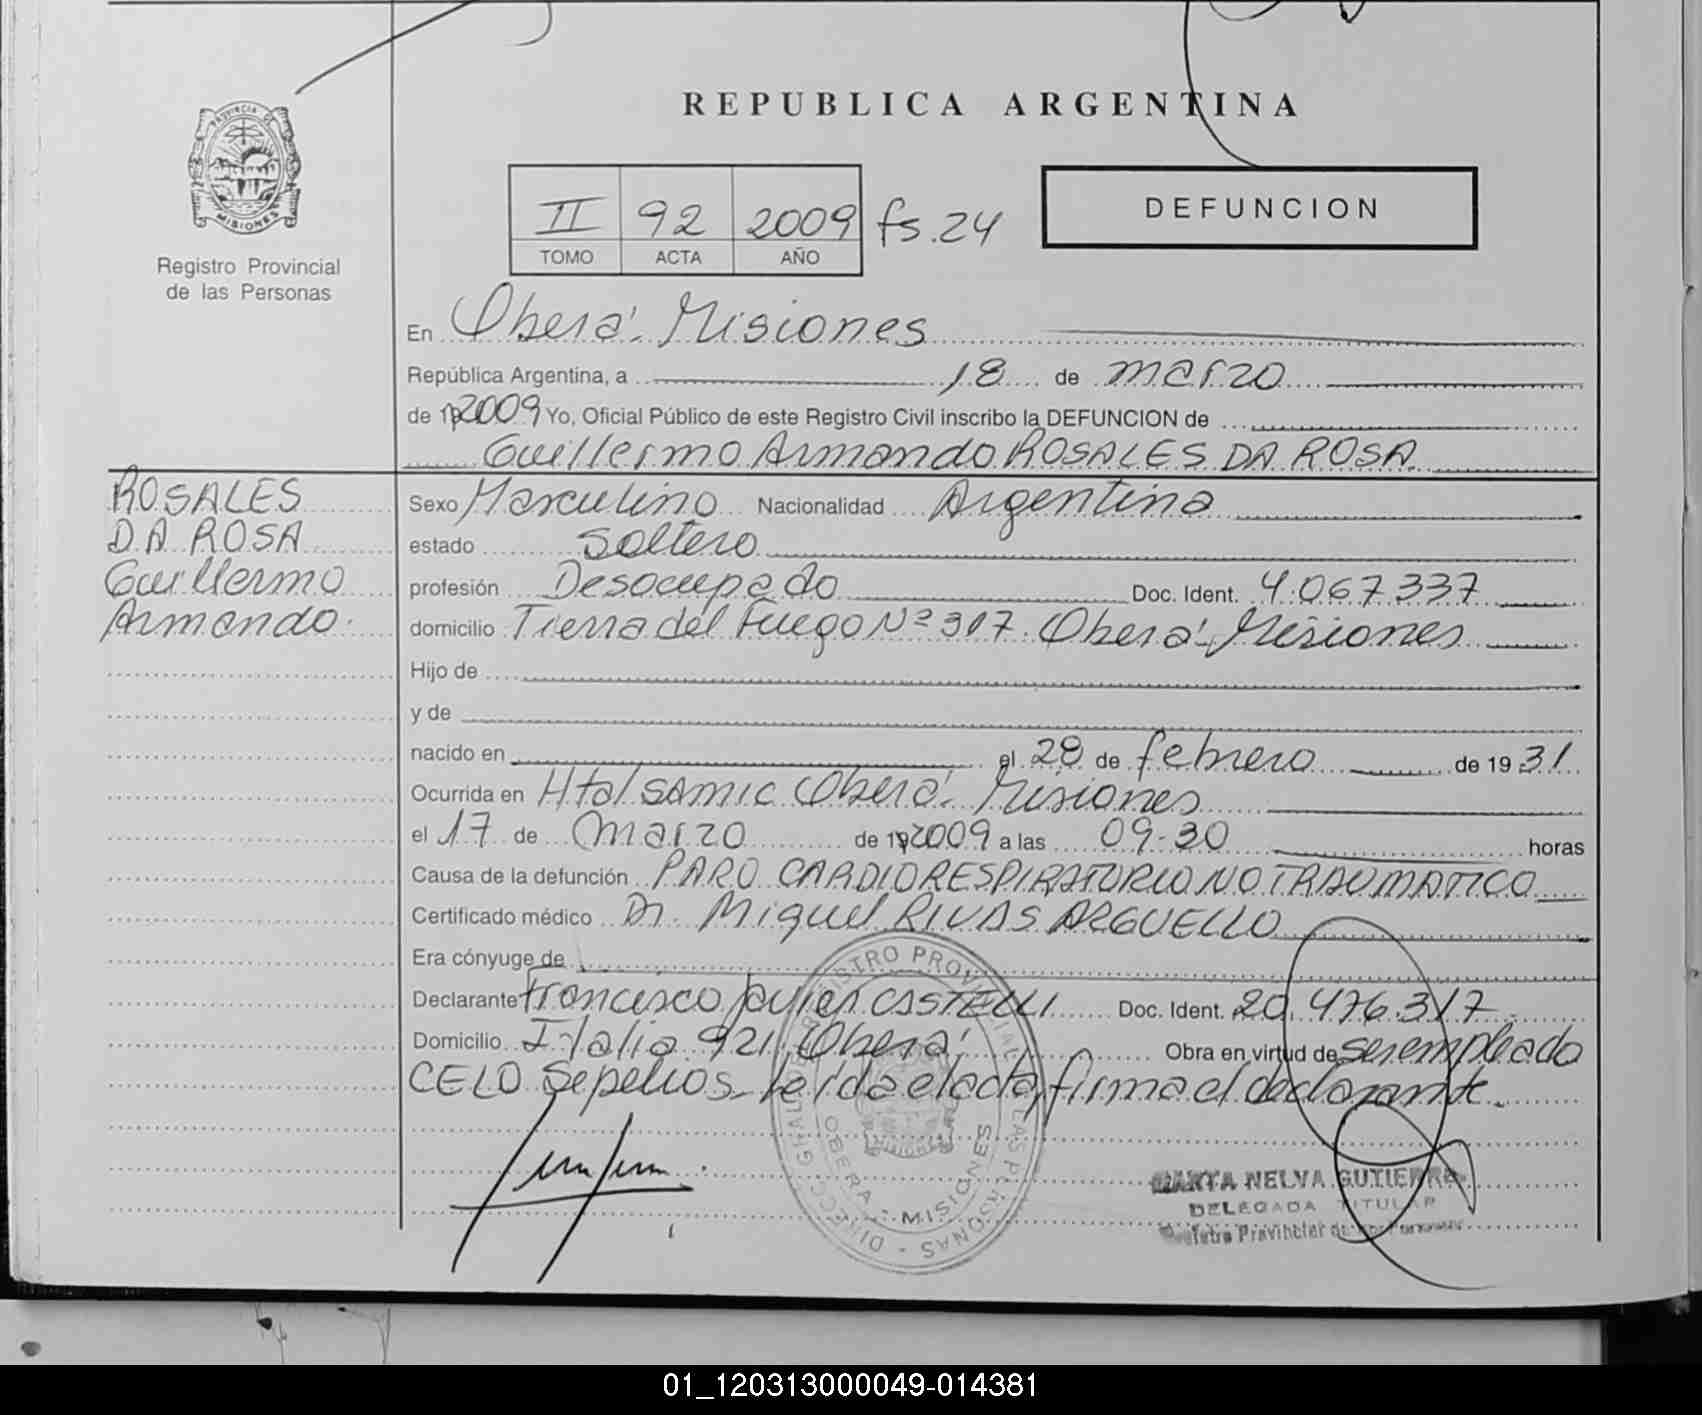 REPUBLICA ARGENTINA
PROVINCIA DE
MISIONES
Registro Provincial
de las Personas
II 92 2009 fs. 24
TOMO ACTA AÑO
DEFUNCION
En Oberá - Misiones
República Argentina, a 18 de marzo
de 2009 Yo, Oficial Público de este Registro Civil inscribo la DEFUNCION de
Guillermo Armando ROSALES DA ROSA
ROSALES
DA ROSA
Guillermo
Armando.
Sexo Masculino Nacionalidad Argentina
estado Soltero
profesión Desocupado Doc. Ident. 4.067.337
domicilio Tierra del Fuego Nº 317. Oberá - Misiones
Hijo de
y de
nacido en el 28 de febrero de 1931
Ocurrida en Htal SAMIC Oberá - Misiones
el 17 de Marzo de 2009 a las 09-30 horas
Causa de la defunción PARO CARDIORESPIRATORIO NO TRAUMATICO
Certificado médico Dr. Miguel RIVAS ARGUELLO
Era cónyuge de
Declarante Francisco Javier CASTELLI Doc. Ident. 20.476.317
Domicilio Italia 921 Oberá Obra en virtud de ser empleado
CELO Sepelios - leída el acta, firma el declarante.
OBERA - MISIONES
MARTA NELVA GUTIERRE
DELEGADA TITULAR
Registro Provincial de las Personas
01_120313000049-014381